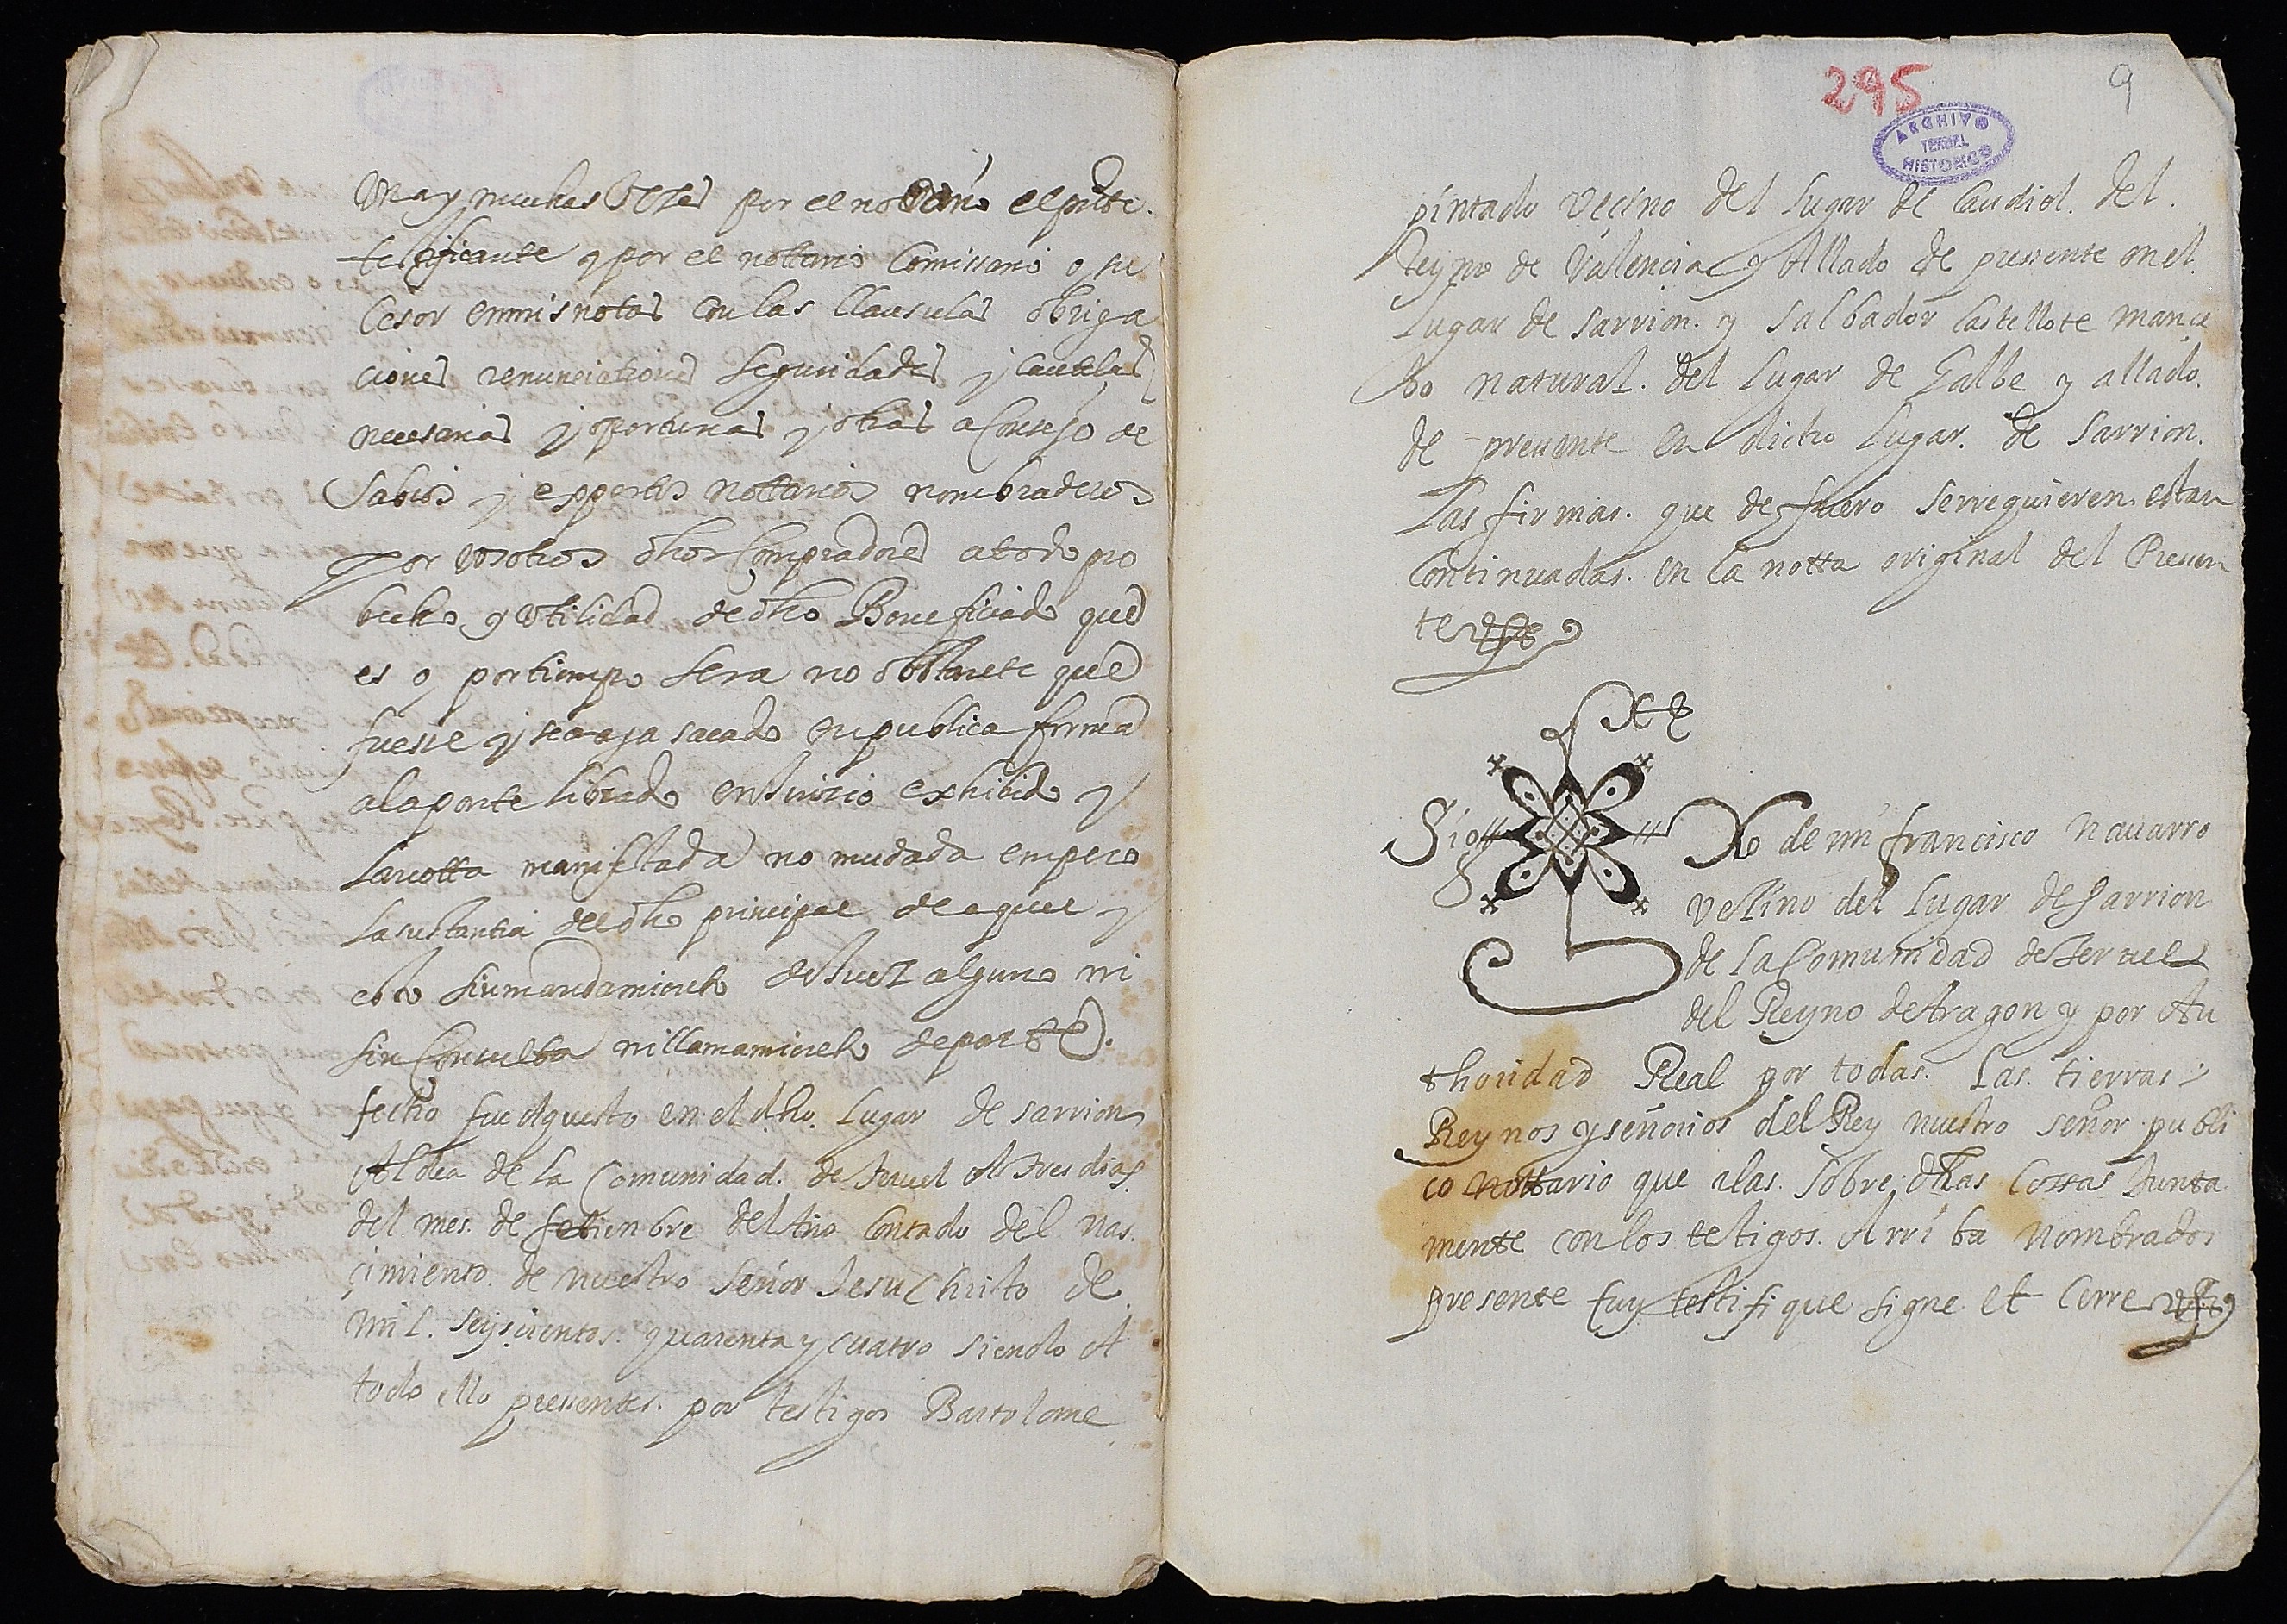 Una y muchas Veces por el notario el pnte.
testificante y por el nottario Comissario o su
cesor en mis notas con las Clausulas obriga
ciones renunciationes Seguridades y cautelas
necesarias y oportunas y otras a Consejo de
Sabios y expertos nottarios nombraderos
por vosotros dhos Compradores a todo pro
becho y Utilidad de dho Beneficiado que
es o por tiempo sera no obstante que
fuesse y se aya sacado en publica forma
a la parte librado en Juizio exhibido y
la notta manifestada no mudada empero
la sustantia del dho principal de aquel y
esto sin mandamiento de Juez alguno ni
sin Consulta ni llamamiento de parte.
fecho fue Aquesto en el dho. Lugar de sarrion
Aldea de la Comunidad. de Teruel A tres dias
del mes. de setienbre del Año Contado del Nas.
çimiento. de nuestro Señor Jesu Christo de
Mil. Seyscientos. quarenta y cuatro siendo A
todo ello pressentes. por testigos Bartolome
295
9
ARCHIVO
TERUEL
HISTORICO
pintado Vecino del Lugar de Caudiel. del.
Reyno de Valencia y Allado de pressente en el.
Lugar de Sarrion. y Salbador Castellote mance
bo natural. del Lugar de Galbe y allado.
de pressente en dicho Lugar. de Sarrion.
Las firmas. que de fuero Serrequieren estan
Continuadas. en la notta original del Presen
te
Sig
no de mi francisco Navarro
Vezino del Lugar de Sarrion
de la Comunidad de Teruel
del Reyno de Aragon y por Au
thoridad Real por todas. Las. tierras
Reynos y señorios del Rey nuestro señor publi
co nottario que a las. sobre dhas Cossas Junta
mente con los testigos. Arriba Nombrados
presente fuy testifique signe et Cerre